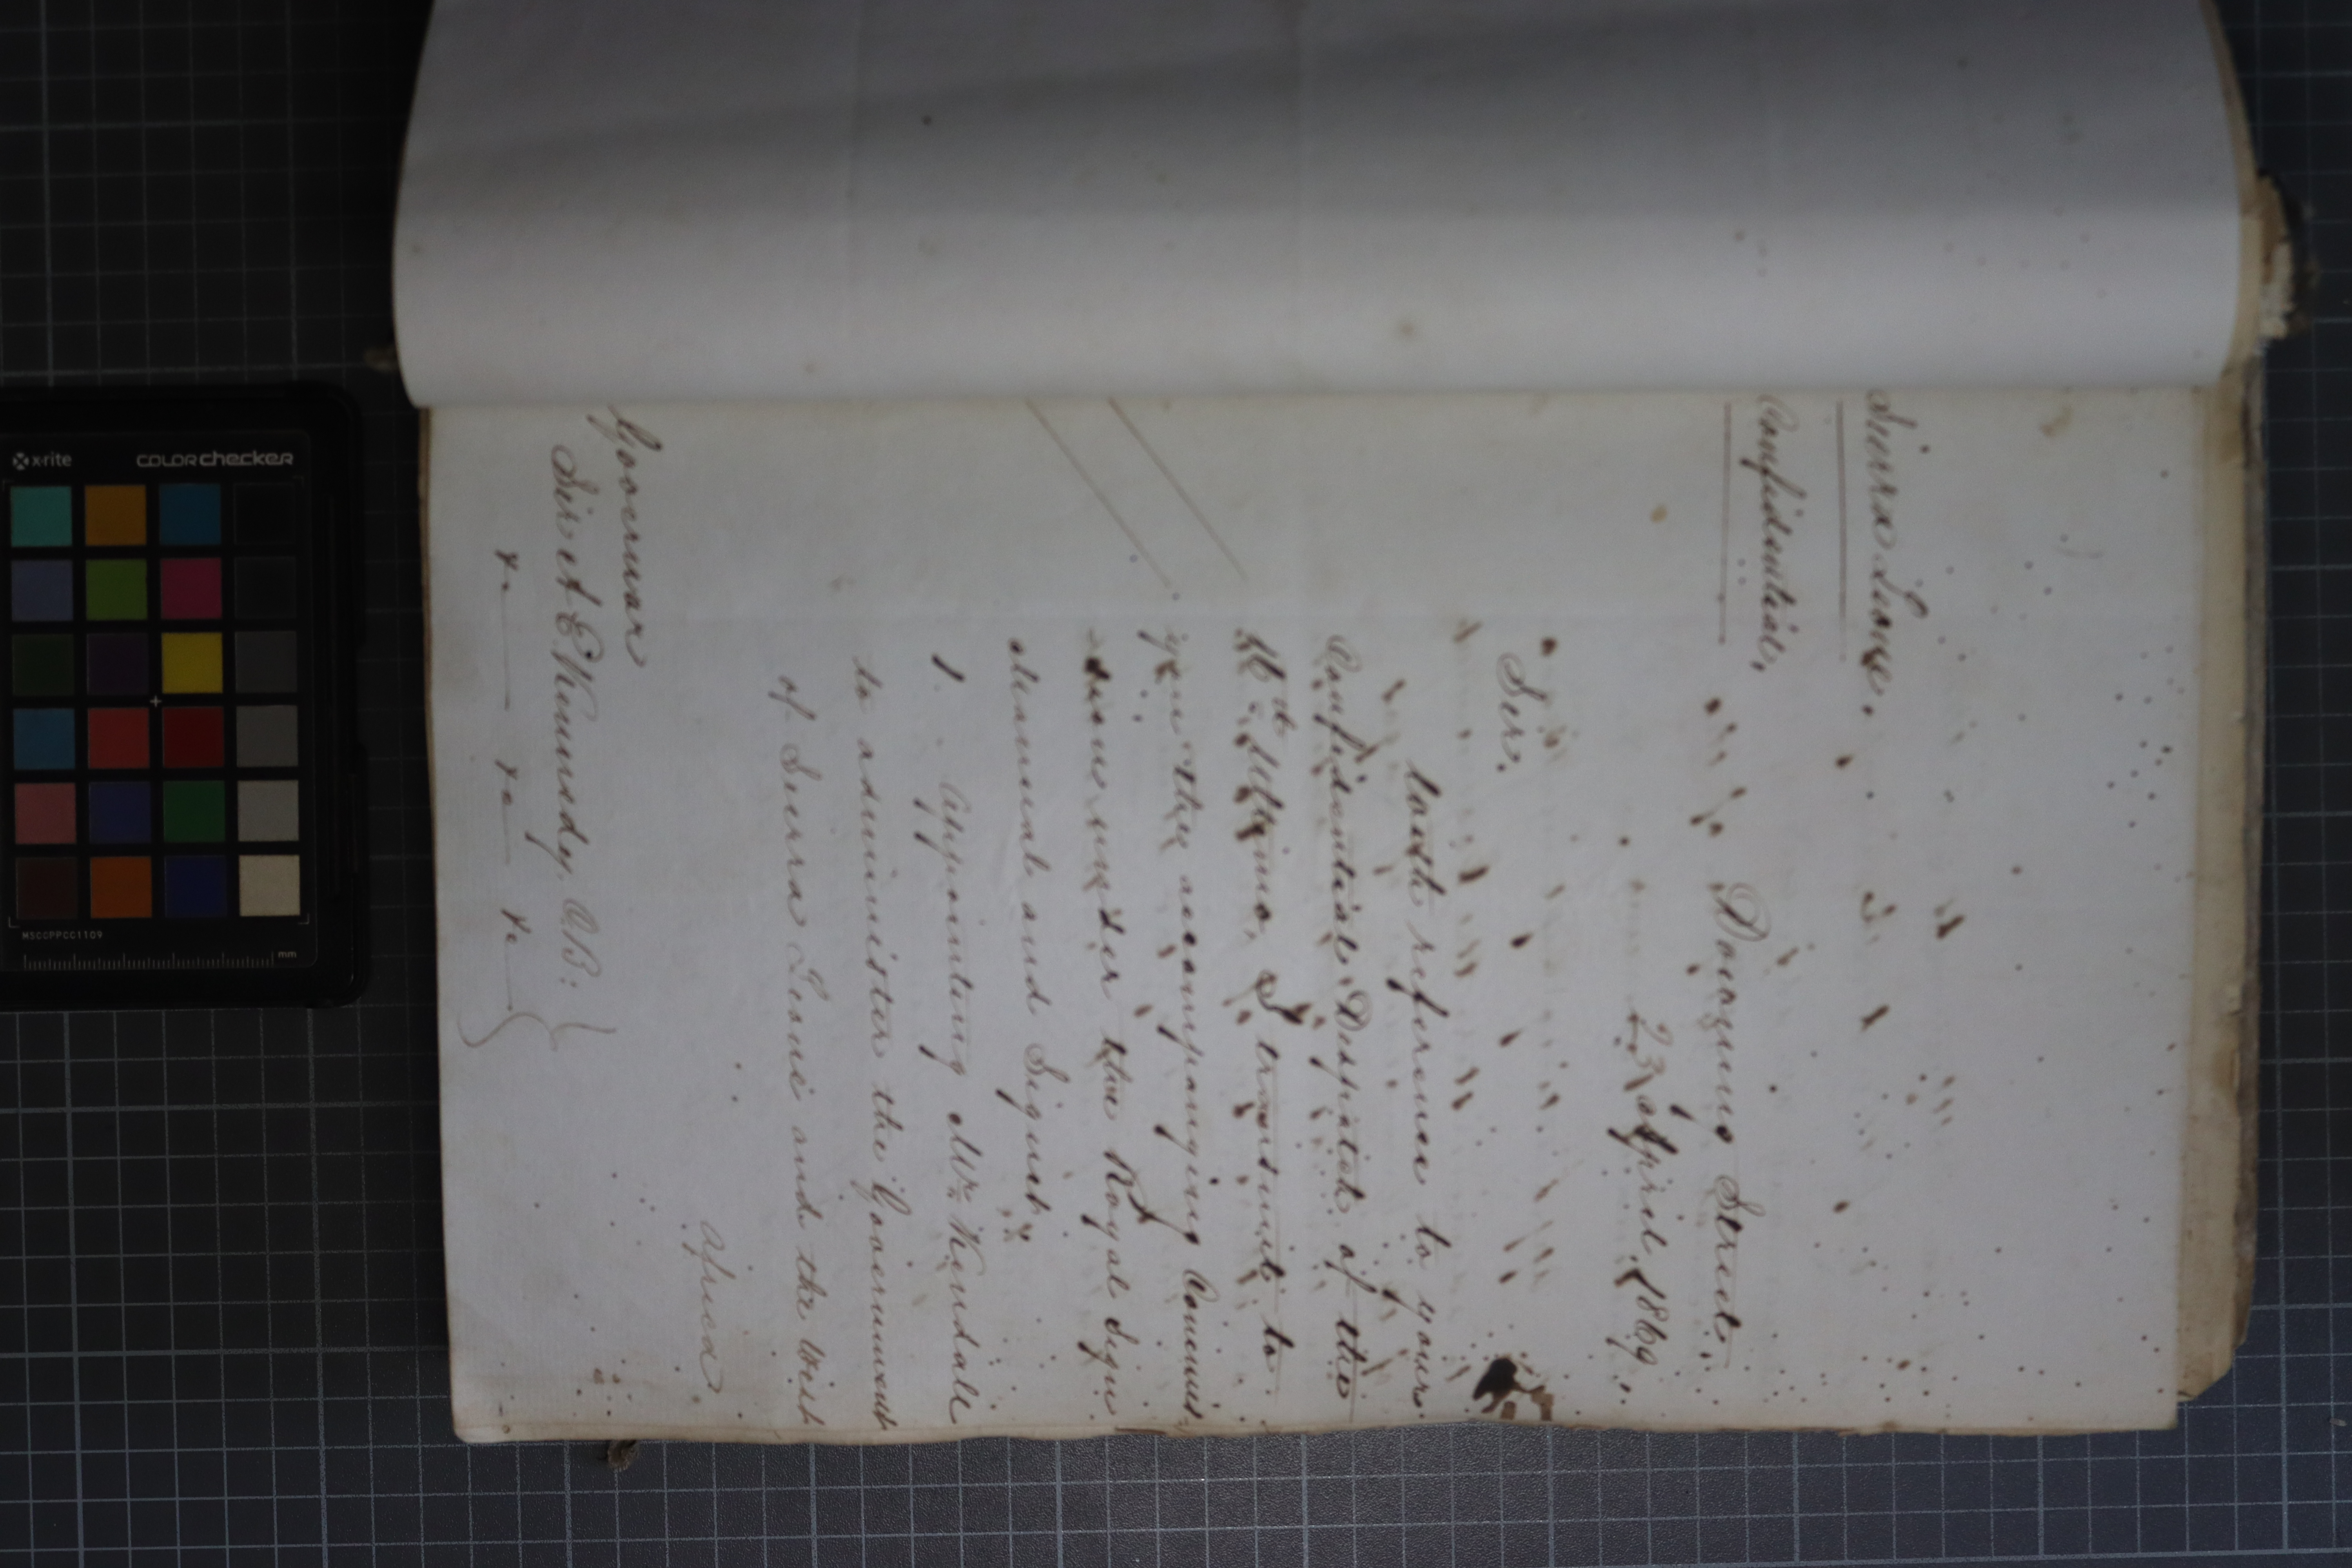 Sierra Leone.
Confidential.
Downing Street.
23 April 1869.
Sir.
With reference to your
Confidential Despatch of the
16th Ultimo, I transmit to
you the accompanying Commis-
sions under the Royal Sign
Manual and Signet.
1. Appointing Mr. Kendall
to administer the Government
of Sierra Leone and the West
Africa.
Governor
Sir A E Kennedy, CB:
&c &c &c
x-rite
colorchecker
MSCCPPCC1109
mm